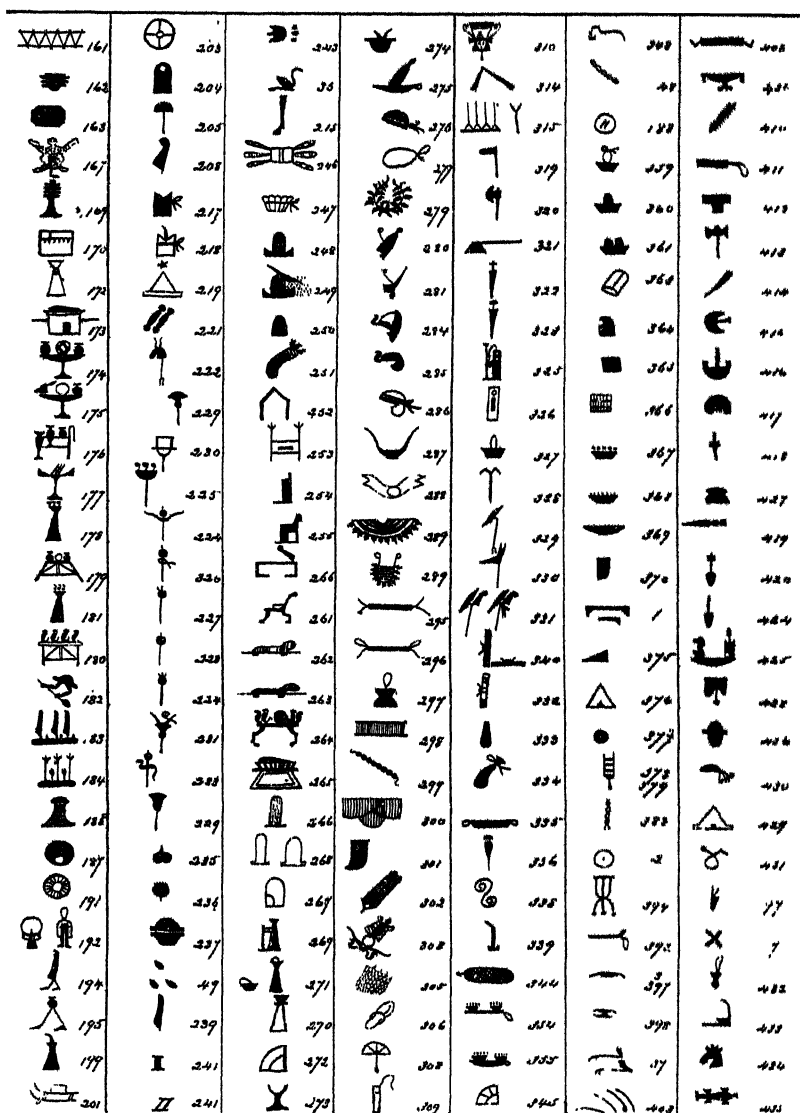 161
162
163
167
169
170
172
173
174
175
176
177
178
179
181
180
182
183
184
188
187
191
192
194
195
199
201
203
204
205
208
217
218
219
221
222
229
230
225
224
226
227
228
224
231
233
229
235
236
237
49
239
241
241
243
35
215
246
247
248
249
250
251
252
253
254
255
266
261
262
263
264
265
266
268
267
269
271
270
272
273
274
275
276
277
279
280
281
284
285
286
287
288
289
289
295
296
297
298
297
300
301
302
303
305
306
308
309
310
314
315
319
320
321
322
323
325
326
327
328
329
330
331
340
332
333
334
335
336
338
339
344
354
355
345
348
48
188
359
360
361
363
364
365
366
367
368
369
370
1
375
376
377
378
379
383
2
394
392
397
398
37
403
408
410
411
412
413
414
416
417
418
427
419
420
424
425
422
426
430
429
431
77
7
432
433
434